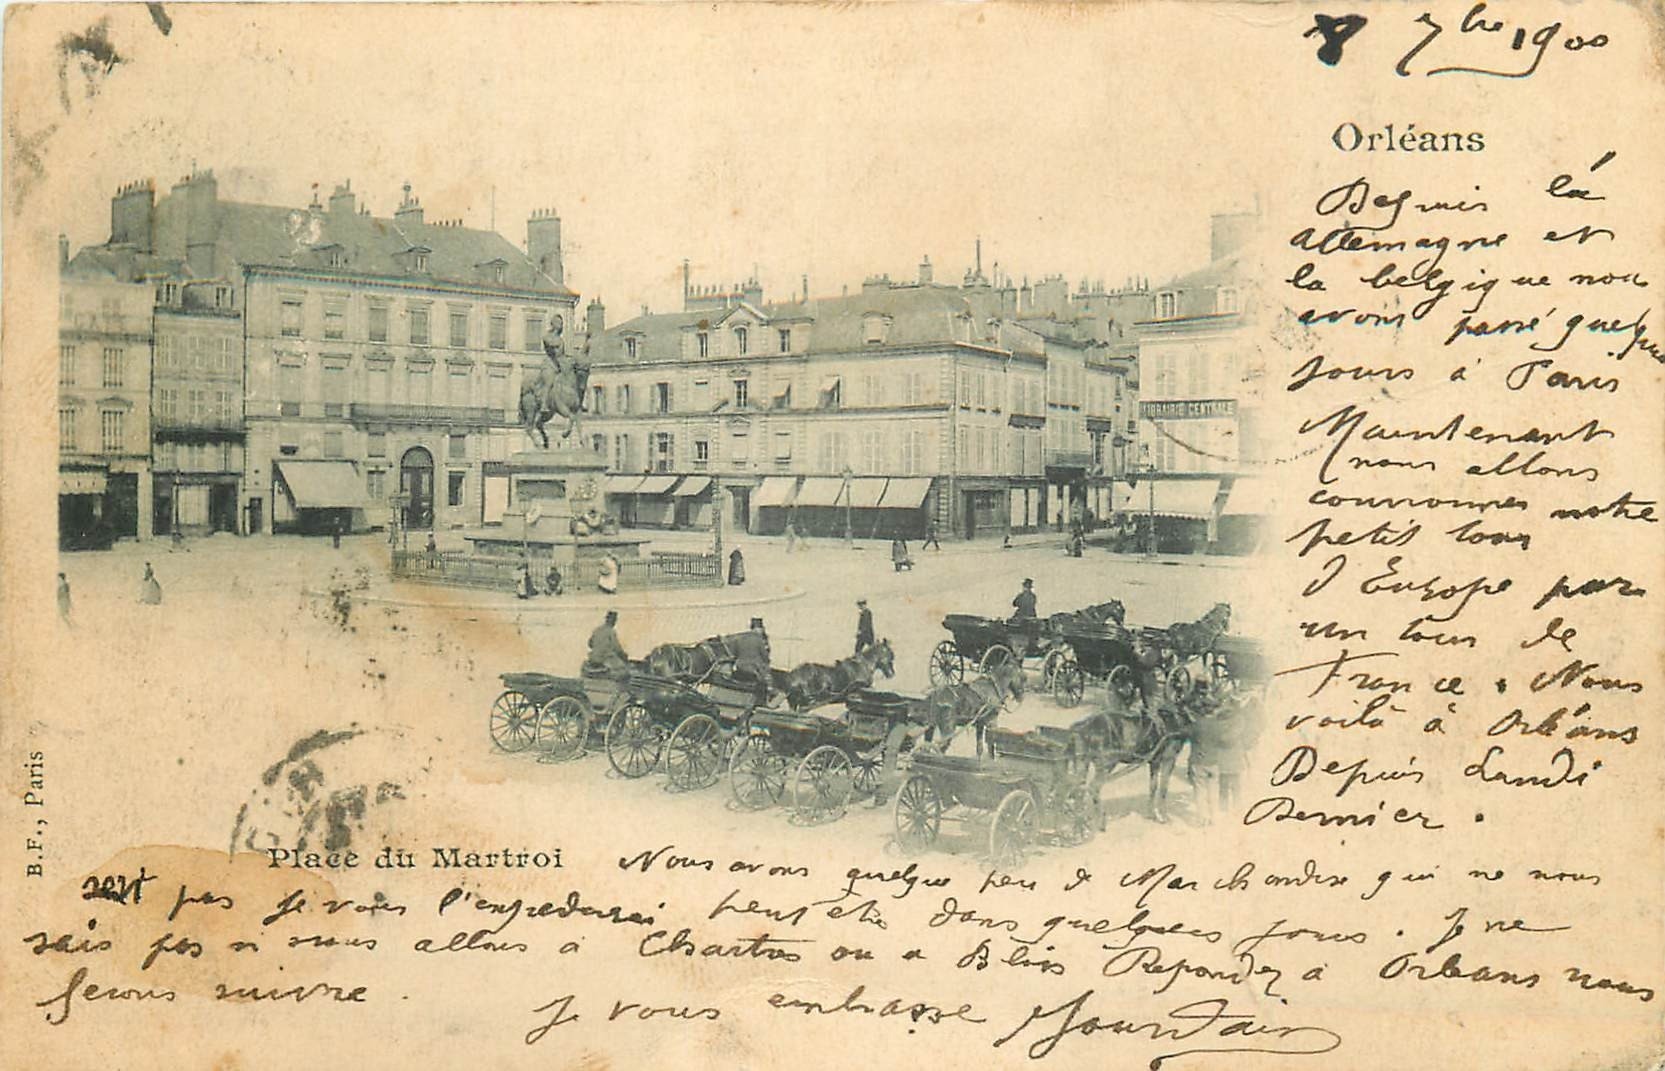 8 7bre 1900
Orléans
Depuis la
allemagne et
la belgique nous
avons passé quelques
jours à Paris
Maintenant
nous allons
couronner notre
petit tour
d'Europe par
un tour de
France. Nous
voilà à Orléans
Depuis Lundi
Dernier.
LIBRAIRIE CENTRALE
B.F., Paris
Place du Martroi
Nous avons quelque peu de Marchandise qui ne nous
sert pas je vous l'expedierai peut etre dans quelques jours. Je ne
sais pas si nous allons a Chartres ou a Blois Repondez à Orleans nous
ferons suivre.
Je vous embrasse Jourdain